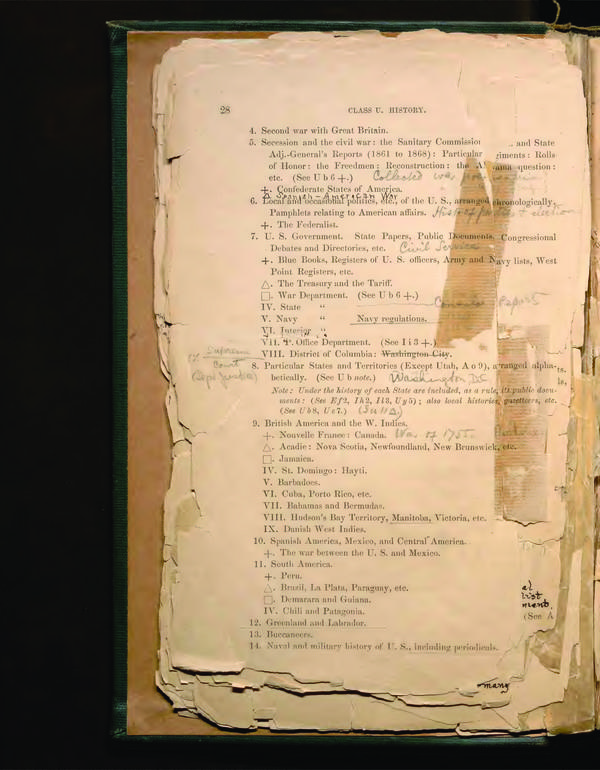 28 CLASS U. HISTORY.
4. Second war with Great Britain.
5. Secession and the civil war: the Sanitary Commission and State
Adj.-General's Reports (1861 to 1868): Particular giments: Rolls
of Honor: the Freedmen: Reconstruction: the Al ama question:
etc. (See U b 6 +.) Collected war
+. Confederate States of America.
Spanish-American War
6. Local and occasional politics, etc., of the U. S., arranged chronologically,
Pamphlets relating to American affairs. Hist. of parties & election
+. The Federalist.
7. U. S. Government. State Papers, Public Documents, Congressional
Debates and Directories, etc. Civil Service
+. Blue Books, Registers of U. S. officers, Army and Navy lists, West
Point Registers, etc.
△. The Treasury and the Tariff.
□. War Department. (See U b 6 +.)
IV. State " Consular Reports
V. Navy " Navy regulations.
VI. Interior "
VII. P. Office Department. (See I i 3 +.)
VIII. District of Columbia: Washington City.
IX Supreme
Court
8. Particular States and Territories (Except Utah, A o 9), arranged alpha-
betically. (See U b note.) Washington DC
Note: Under the history of each State are included, as a rule, its public docu-
ments: (See Ef2, Ih2, Il3, Uy5); also local histories, gazetteers, etc.
(See Ub8, Uc7.)
9. British America and the W. Indies.
+. Nouvelle France: Canada. War of 1755.
△. Acadie: Nova Scotia, Newfoundland, New Brunswick, etc.
□. Jamaica.
IV. St. Domingo: Hayti.
V. Barbadoes.
VI. Cuba, Porto Rico, etc.
VII. Bahamas and Bermudas.
VIII. Hudson's Bay Territory, Manitoba, Victoria, etc.
IX. Danish West Indies.
10. Spanish America, Mexico, and Central America.
+. The war between the U. S. and Mexico.
11. South America.
+. Peru.
△. Brazil, La Plata, Paraguay, etc.
□. Demarara and Guiana.
IV. Chili and Patagonia.
(See A
12. Greenland and Labrador.
13. Buccaneers.
14. Naval and military history of U. S., including periodicals.
many